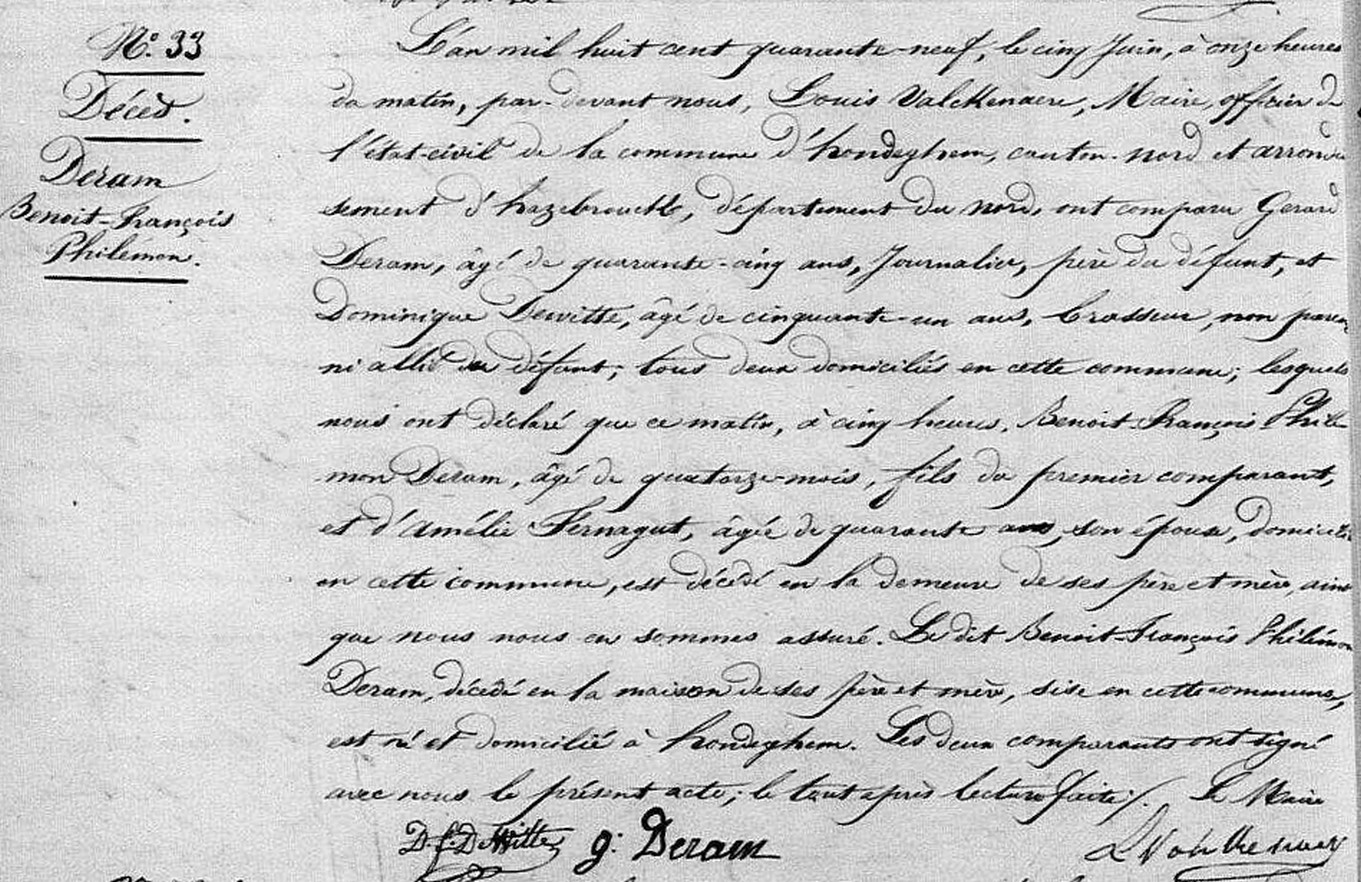 N.º 33
Décès.
Deram
Benoit-François
Philémon.
L'an mil huit cent quarante-neuf, le cinq Juin, à onze heures
du matin, par-devant nous, Louis Valckenaere, Maire, officier de
l'état-civil de la commune d'hondeghem, canton-nord et arrondis
sement d'hazebrouck, département du nord, ont comparu Gerard
Deram, âgé de quarante-cinq ans, Journalier, père du défunt, et
Dominique Dewitte, âgé de cinquante-un ans, brasseur, non paren
ni allié du défunt; tous deux domiciliés en cette commune; lesquels
nous ont déclaré que ce matin, à cinq heures, Benoit François Phile
mon Deram, âgé de quatorze-mois, fils du premier comparant,
et d'amélie Fernagut, âgée de quarante ans, son épouse, domiciliés
en cette commune, est décédé en la demeure de ses père et mère, ainsi
que nous nous en sommes assuré. Le dit Benoit-François Philémon
Deram, décédé en la maison de ses père et mère, sise en cette commune,
est né et domicilié à hondeghem. Les deux comparants ont signé
avec nous le présent acte; le tout après lecture faite ⁒. Le Maire
D. f. DeWitte g: Deram